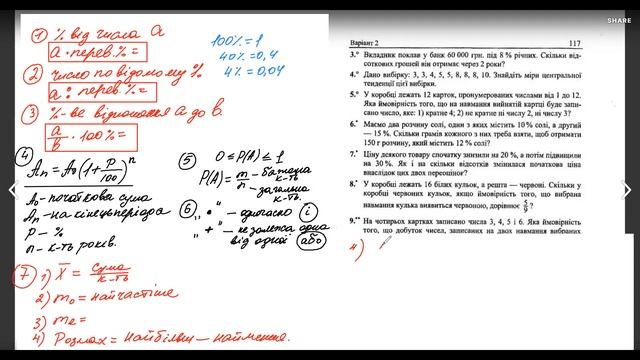 SHARE
① % від числа а
а · перев.% =
100% = 1
40% = 0,4
4% = 0,04
② число по відомому %
а : перев.% =
③ %-ве відношення а до в.
а/в · 100% =
④ Aₙ = A₀(1 + P/100)ⁿ
A₀ - початкова сума
Aₙ - на кінець періода
P - %
n - к-ть років.
⑤ 0 ≤ P(A) ≤ 1
P(A) = m/n
к-ть
- загальна
к-ть.
⑥ „ · " - одночасно і
„ + " - не залежа одна
від одної або
⑦ 1) X̄ = сума/к-ть
2) m₀ = найчастіше
3) mₑ =
4) Розмах = найбільш – найменше.
Варіант 2
117
3.° Вкладник поклав у банк 60 000 грн. під 8 % річних. Скільки від-
соткових грошей він отримає через 2 роки?
4.° Дано вибірку: 3, 3, 4, 5, 5, 8, 8, 8, 10. Знайдіть міри центральної
тенденції цієї вибірки.
5.° У коробці лежать 12 карток, пронумерованих числами від 1 до 12.
Яка ймовірність того, що на навмання вийнятій картці буде запи-
сано число, яке: 1) кратне 4; 2) не кратне ні числу 2, ні числу 3?
6.• Маємо два розчину солі, один з яких містить 10 % солі, а другий
— 15 %. Скільки грамів кожного з них треба взяти, щоб отримати
150 г розчину, який містить 12 % солі?
7.• Ціну деякого товару спочатку знизили на 20 %, а потім підвищили
на 30 %. Як і на скільки відсотків змінилася початкова ціна
внаслідок цих двох переоцінок?
8.• У коробці лежать 16 білих кульок, а решта — червоні. Скільки у
коробці червоних кульок, якщо ймовірність того, що вибрана
навмання кулька виявиться червоною, дорівнює 5/9 ?
9.•• На чотирьох картках записано числа 3, 4, 5 і 6. Яка ймовірність
того, що добуток чисел, записаних на двох навмання вибраних
4)